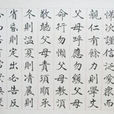 次謹信汎愛眾而
親仁有餘力則學文
父母呼應勿緩父母
命行勿懶父母教須
敬聽父母責須順承
冬則溫夏則凊晨則
省昏則定出必告反